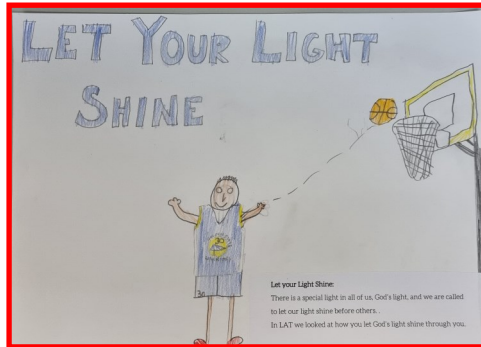 LET YOUR LIGHT
SHINE
Let your Light Shine:
There is a special light in all of us, God's light, and we are called
to let our light shine before others. .
In LAT we looked at how you let God's light shine through you.